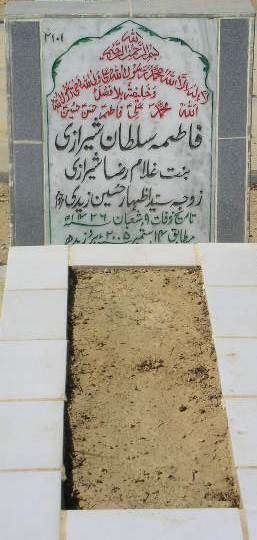 ۲۱۰۱
بسم اللہ الرحمن الرحیم
لا الہ الا اللہ محمد رسول اللہ علی ولی اللہ وصی رسول اللہ
وخلیفتہ بلا فصل
اللہ محمد علی فاطمہ حسن حسین
فاطمہ سلطان شیرازی
بنت غلام رضا شیرازی
زوجہ سید اظہار حسین زیدی مرحوم
تاریخ وفات ۹ شعبان ۱۴۲۶ھ
مطابق ۱۴ ستمبر ۲۰۰۵ء بروز بدھ